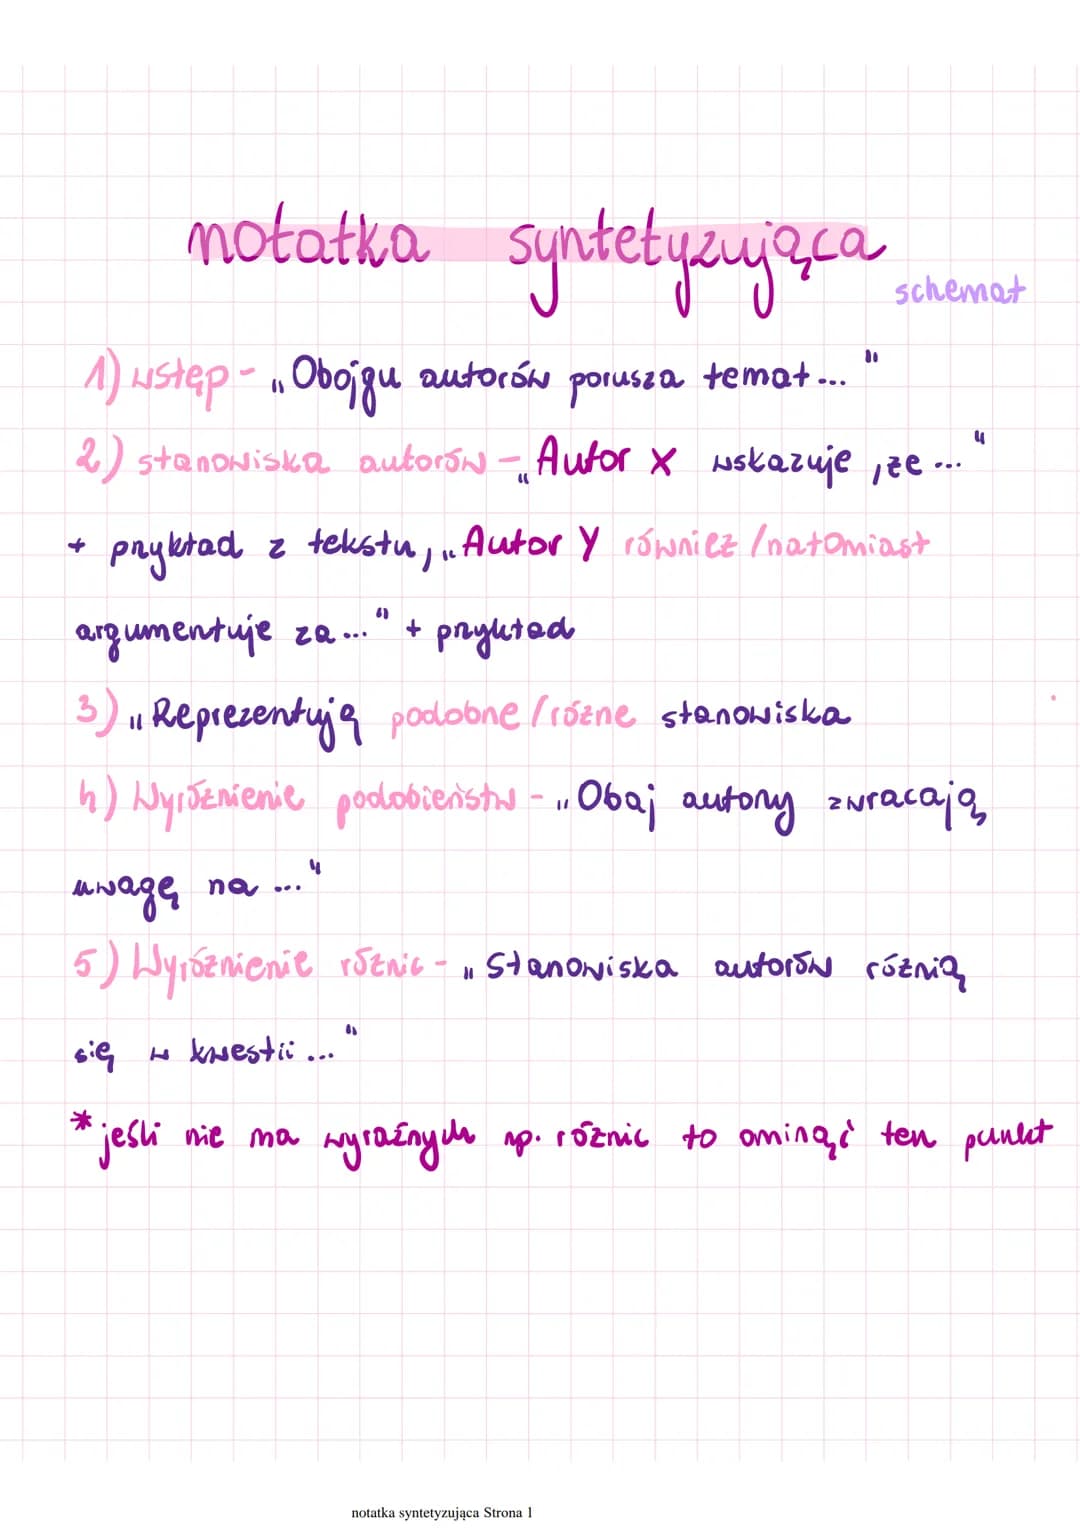 notatka syntetyzująca
schemat
1) wstęp - „Obojgu autorów porusza temat... "
2) stanowiska autorów - „Autor X wskazuje ,że ..."
+ przykład z tekstu, „Autor Y również /natomiast
argumentuje za..." + przykład
3) „Reprezentują podobne /różne stanowiska
4) Wyróżnienie podobieństw - „Obaj autorzy zwracają
uwagę na ..."
5) Wyróżnienie różnic - „Stanowiska autorów różnią
się w kwestii ..."
* jeśli nie ma wyraźnych np. różnic to ominąć ten punkt
notatka syntetyzująca Strona 1